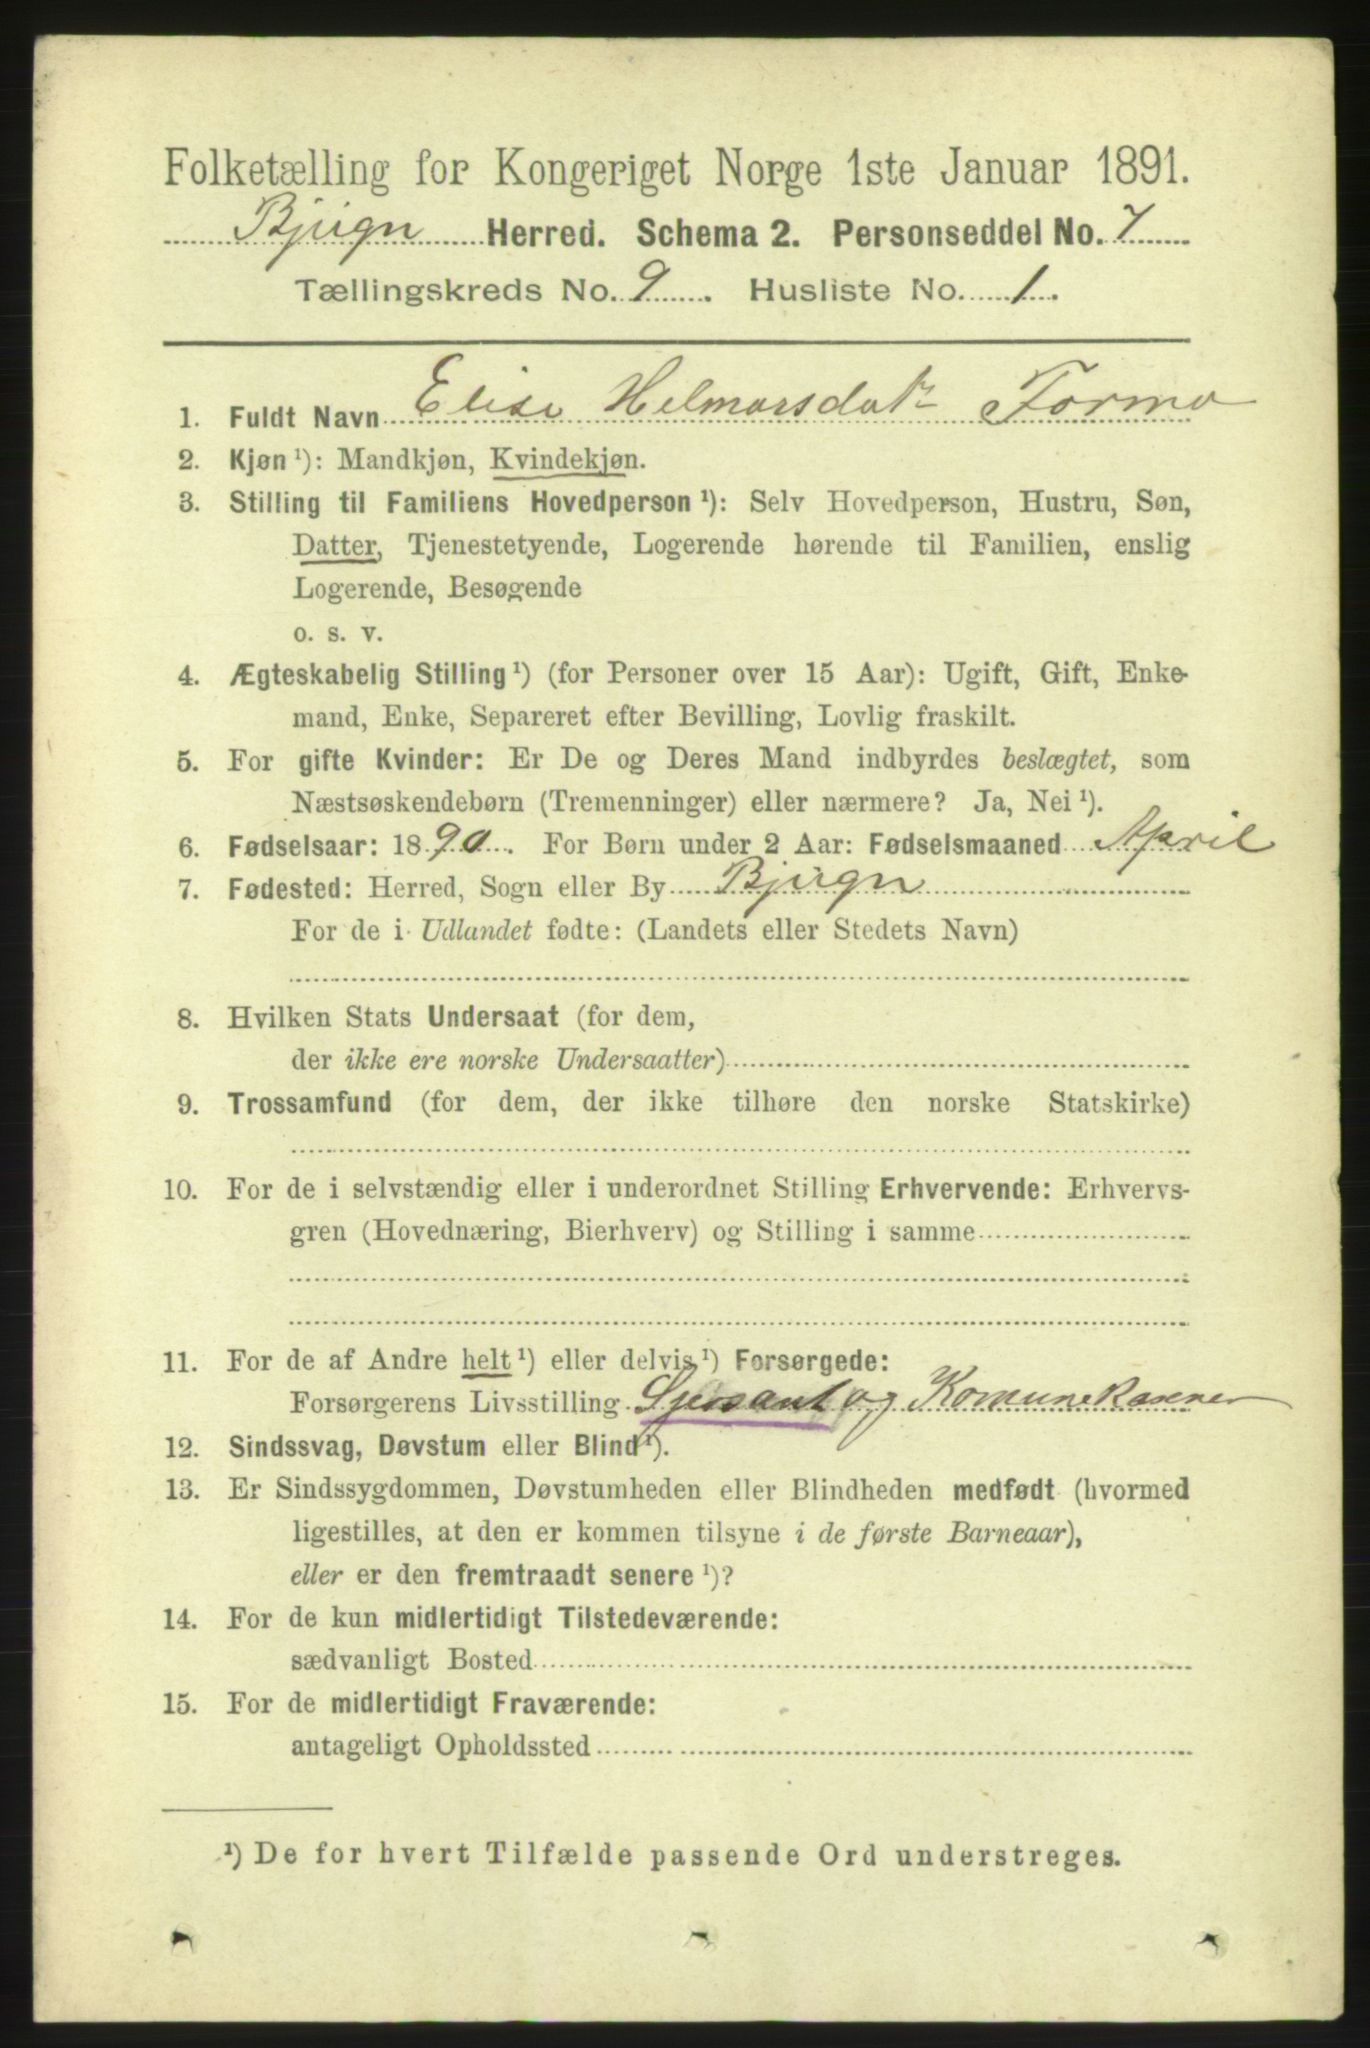 Folketælling for Kongeriget Norge 1ste Januar 1891.
Bjugn Herred. Schema 2. Personseddel No. 7
Tællingskreds No. 9. Husliste No. 1.
1. Fuldt Navn Elise Helmersdatr Formo
2. Kjøn ¹): Mandkjøn, Kvindekjøn.
3. Stilling til Familiens Hovedperson ¹): Selv Hovedperson, Hustru, Søn,
Datter, Tjenestetyende, Logerende hørende til Familien, enslig
Logerende, Besøgende
o. s. v.
4. Ægteskabelig Stilling ¹) (for Personer over 15 Aar): Ugift, Gift, Enke-
mand, Enke, Separeret efter Bevilling, Lovlig fraskilt.
5. For gifte Kvinder: Er De og Deres Mand indbyrdes beslægtet, som
Næstsøskendebørn (Tremenninger) eller nærmere? Ja, Nei ¹).
6. Fødselsaar: 1890. For Børn under 2 Aar: Fødselsmaaned April
7. Fødested: Herred, Sogn eller By Bjugn
For de i Udlandet fødte: (Landets eller Stedets Navn)
8. Hvilken Stats Undersaat (for dem,
der ikke ere norske Undersaatter)
9. Trossamfund (for dem, der ikke tilhøre den norske Statskirke)
10. For de i selvstændig eller i underordnet Stilling Erhvervende: Erhvervs-
gren (Hovednæring, Bierhverv) og Stilling i samme
11. For de af Andre helt ¹) eller delvis ¹) Forsørgede:
Forsørgerens Livsstilling Sjersant og Komunekaserer
12. Sindssvag, Døvstum eller Blind ¹).
13. Er Sindssygdommen, Døvstumheden eller Blindheden medfødt (hvormed
ligestilles, at den er kommen tilsyne i de første Barneaar),
eller er den fremtraadt senere ¹)?
14. For de kun midlertidigt Tilstedeværende:
sædvanligt Bosted
15. For de midlertidigt Fraværende:
antageligt Opholdssted
¹) De for hvert Tilfælde passende Ord understreges.